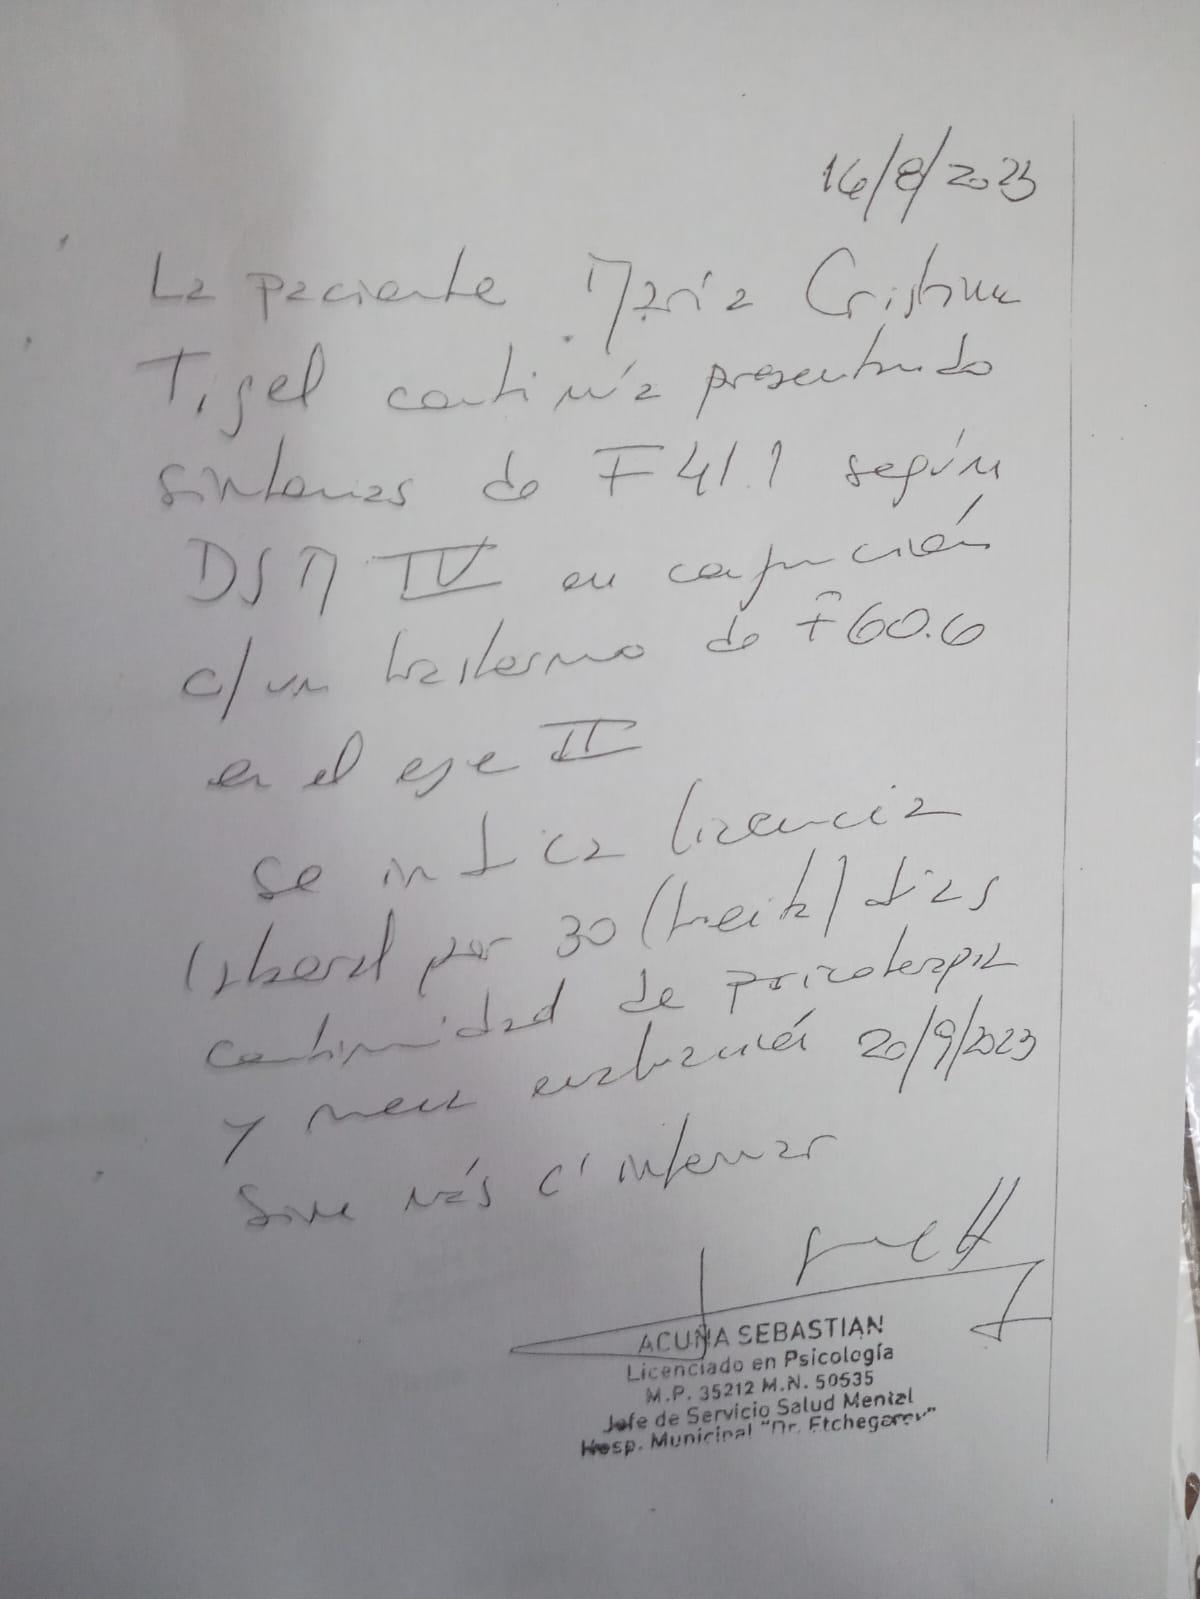 16/8/2023
La paciente María Cristina
Tigel continúa presentando
síntomas de F 41.1 según
DSM IV en conjunción
c/ un trastorno de F 60.6
en el eje II
se indica licencia
laboral por 30 (treinta) días
continuidad de psicoterapia
y nueva evaluación 20/9/2023
Sin más p/ informar
ACUÑA SEBASTIAN
Licenciado en Psicología
M.P. 35212 M.N. 50535
Jefe de Servicio Salud Mental
Hosp. Municipal "Dr. Etchegaray"